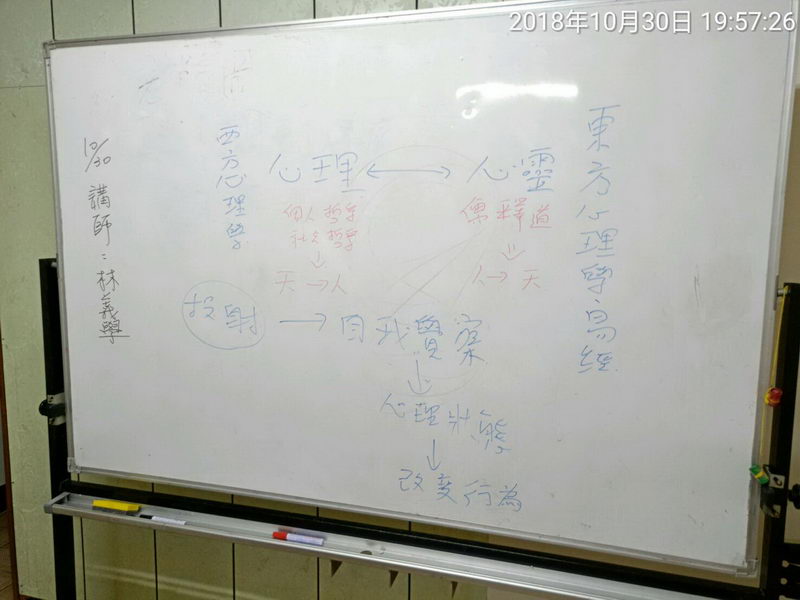 2018年10月30日 19:57:26
10/30 講師:林義學
西方心理學
心理 ↔ 心靈
個人哲学
社会哲学
↓
天→人
儒釋道
↓
人→天
東方心理學易經
投射 → 自我覺察
↓
心理狀態
↓
改变行為